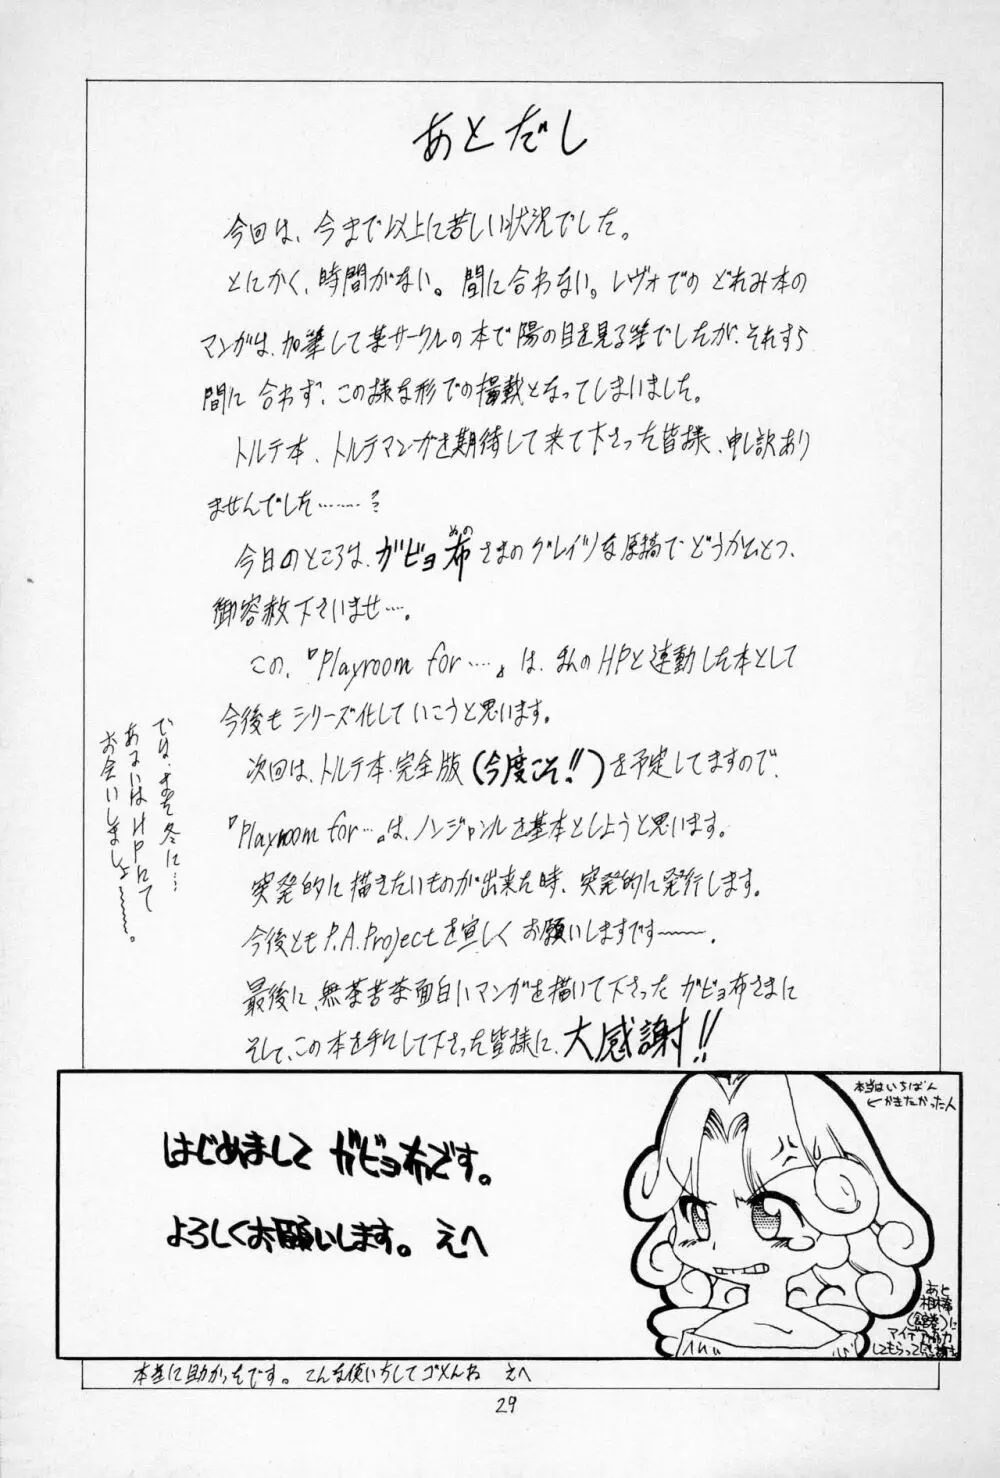 あとだし
今回は、今まで以上に苦しい状況でした。
とにかく、時間がない。間に合わない。レヴォでの どれみ本の
マンガは、加筆して某サークルの本で陽の目を見る筈でしたが、それすら
間に合わず、この様な形での掲載となってしまいました。
トルテ本、トルテマンガを期待して来て下さった皆様、申し訳あり
ませんでした………?
今日のところは、ガビョ布さまのグレイツな原稿でどうかひとつ、
めの
御容赦下さいませ…。
この、『Playroom for…』は、まんのHPと連動した本として
今後もシリーズ化していこうと思います。
次回は、トルテ本・完全版(今度こそ!!)を予定してますので、
『Playroom for…』は、ノンジャンルを基本としようと思います。
突発的に描きたいものが出来た時、突発的に発行します。
今後ともP.A.Projectを宜しくお願いしますです〜〜。
最後に、無茶苦茶面白いマンガを描いて下さった ガビョ布さまに
そして、この本を手にして下さった皆様に、大感謝!!
では、また冬に…
あるいはHPにて
お会いしましょ〜〜。
はじめまして ガビョ布です。
よろしくお願いします。 えへ
本当はいちばん
←かきたかった人
あと
相棒
に
アイデア協力
してもらって感謝
本当に助かったです。こんな使いちしてゴメんね えへ
29